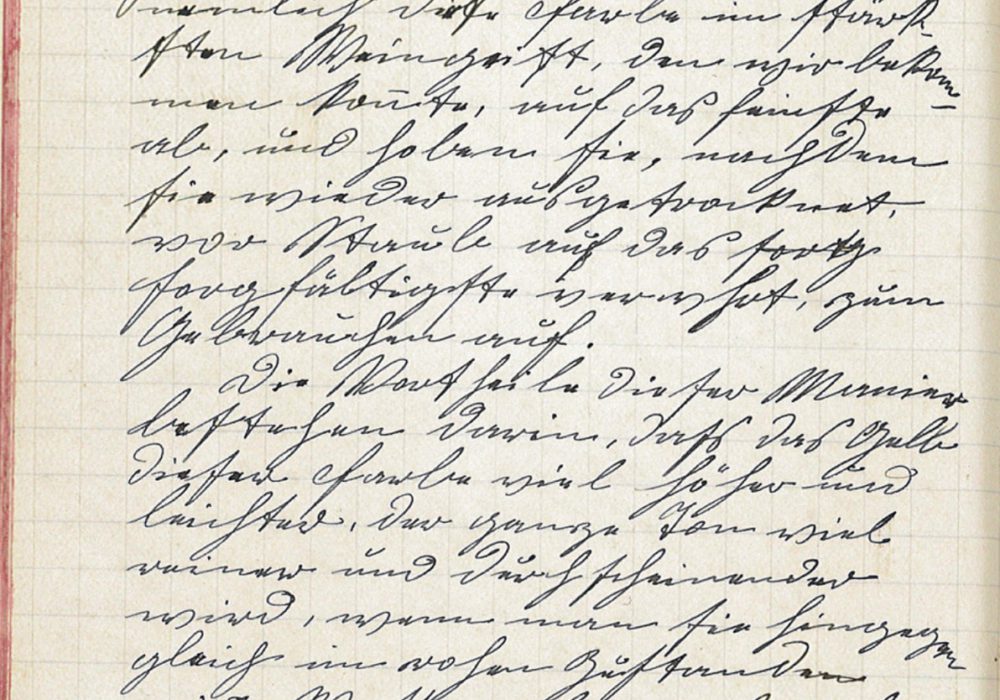 nemlich diese Farbe im stärk-
sten Weingeist, den wir bekom-
men konnte, auf das feinste
ab, und hoben sie, nachdem
sie wieder ausgetrocknet,
vor Staub auf das
sorgfältigste verwahrt, zum
Gebrauchen auf.
Die Vortheile dieser Manier
bestehen darin, dass das Gelb
dieser Farbe viel höher und
leichter, der ganze Ton viel
reiner und durchscheinender
wird, wenn man sie hingegen
gleich im rohen Zustanden